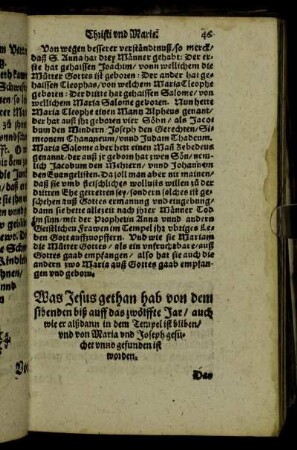 Christi vnd Marie. 46
Von wegen besserer verständtnuß/ so merck/
daß S. Anna hat drey Männer gehabt: Der er-
ste hat gehaissen Joachim/ vonn wellichem die
Mütter Gottes ist geboren: Der ander hat ge-
haissen Cleophas/ von welchem Maria Cleophe
geboren: Der dritte hat gehaissen Salome/ von
wellichem Maria Salome geboren. Nun hette
Maria Cleophe einen Mann Alpheus genant/
der hat auß jr geborn vier Söhn/ als Jaco-
bum den Mindern Joseph den Gerechten/ Si-
monem Chananeum/ vnnd Judam Thadeum.
Maria Salome aber hett einen Mañ Zebedeus
genannt/ der auß jr geborn hat zwen Sön/ nem-
lich Jacobum den Mehrern/ vnnd Johannem
den Euangelisten. Da soll man aber nit mainen/
daß sie vmb fleischliches wollusts willen zu der
dritten Ehe getretten sey/ sondern solches ist ge-
schehen auß Gottes ermanung vnd eingebung/
Dann sie hette alle zeit nach jhrer Männer Tod
im sinn/ mit der Prophetin Anna vnnd andern
Geistlichen Frawen im Tempel jhr vbriges Le-
ben Gott auffzuopffern. Vnnd wie sie Mariam
die Mütter Gottes/ als ein vnfruchtbare/ auß
Gottes gaab empfangen/ also hat sie auch die
andern zwo Maria auß Gottes gaab empfan-
gen vnd geborn.
Was Jesus gethan hab von dem
sibenden biß auff das zwölffte Jar/ auch
wie er alßdann in dem Tempel ist bliben/
vnd von Maria vnd Joseph gesu-
chet vnnd gefunden ist
worden.
Das